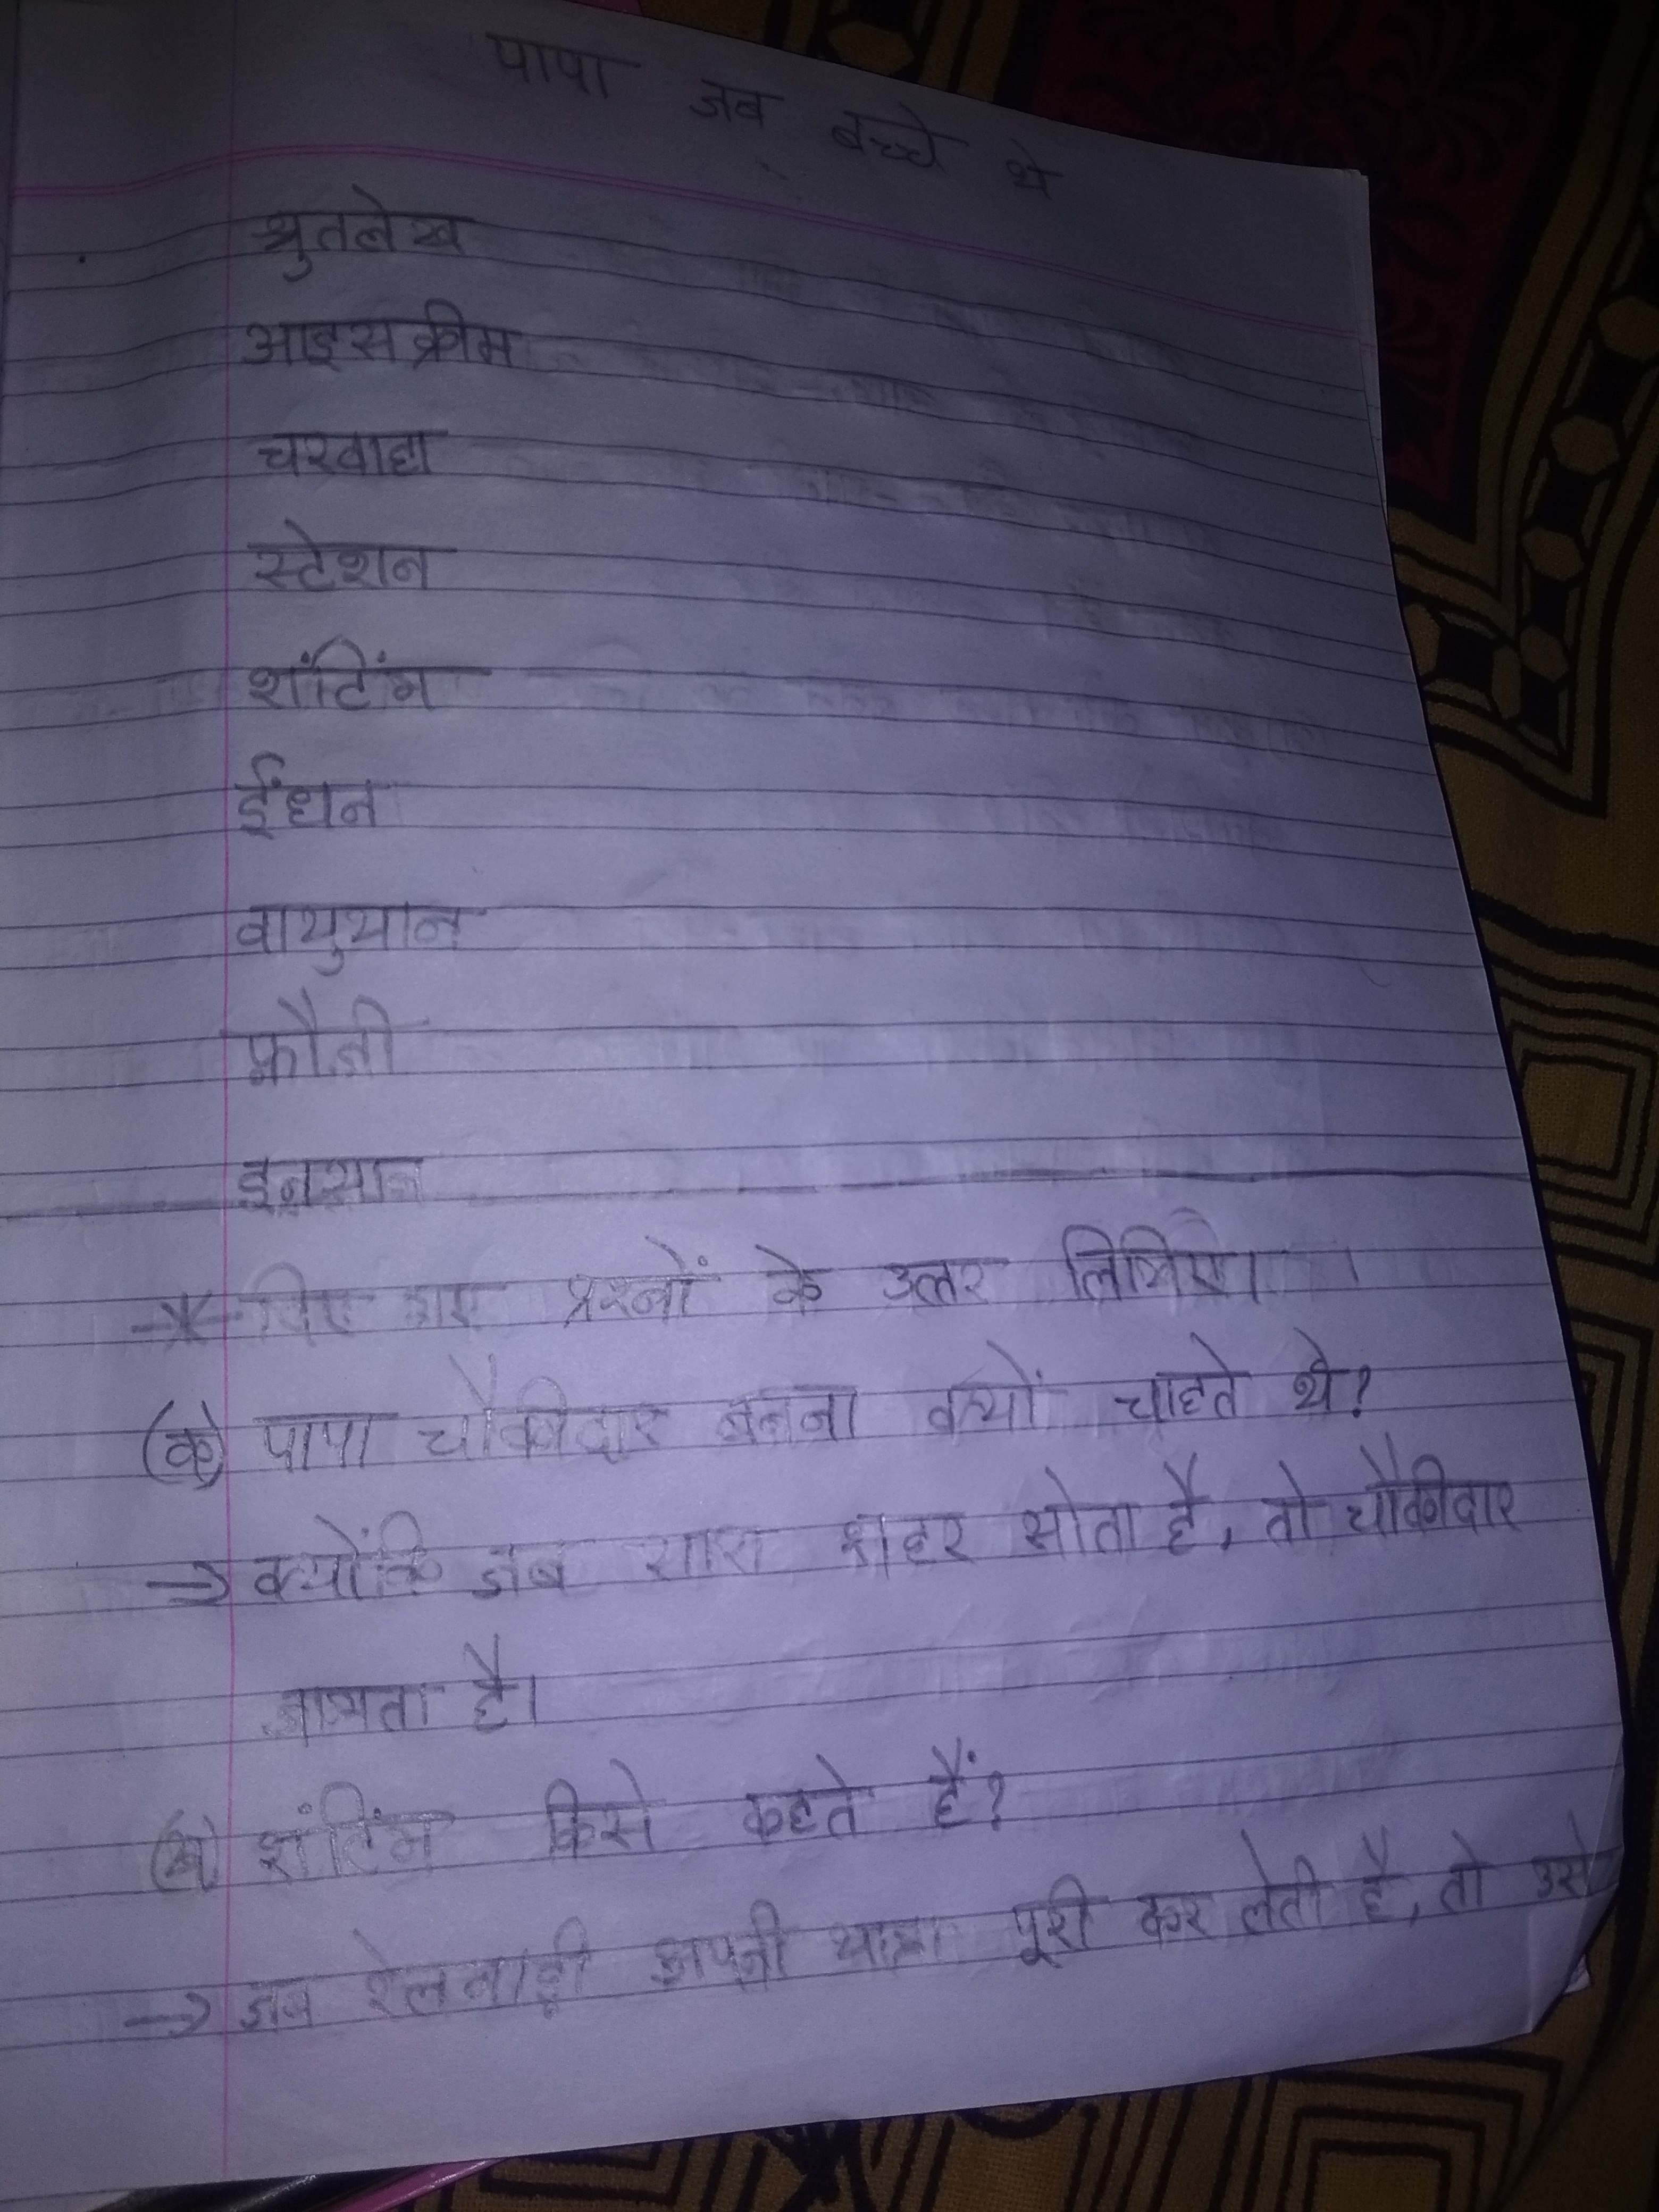 पापा जब बच्चे थे
श्रुतलेख
आइसक्रीम
चरवाहा
स्टेशन
शंटिंग
ईंधन
वायुयान
फ़ौजी
इनसान
दिए गए प्रश्नों के उत्तर लिखिए।
(क) पापा चौकीदार बनना क्यों चाहते थे?
→ क्योंकि जब सारा शहर सोता है, तो चौकीदार
जागता है।
(ख) शंटिंग किसे कहते हैं?
→ जब रेलगाड़ी अपनी यात्रा पूरी कर लेती है, तो उसे